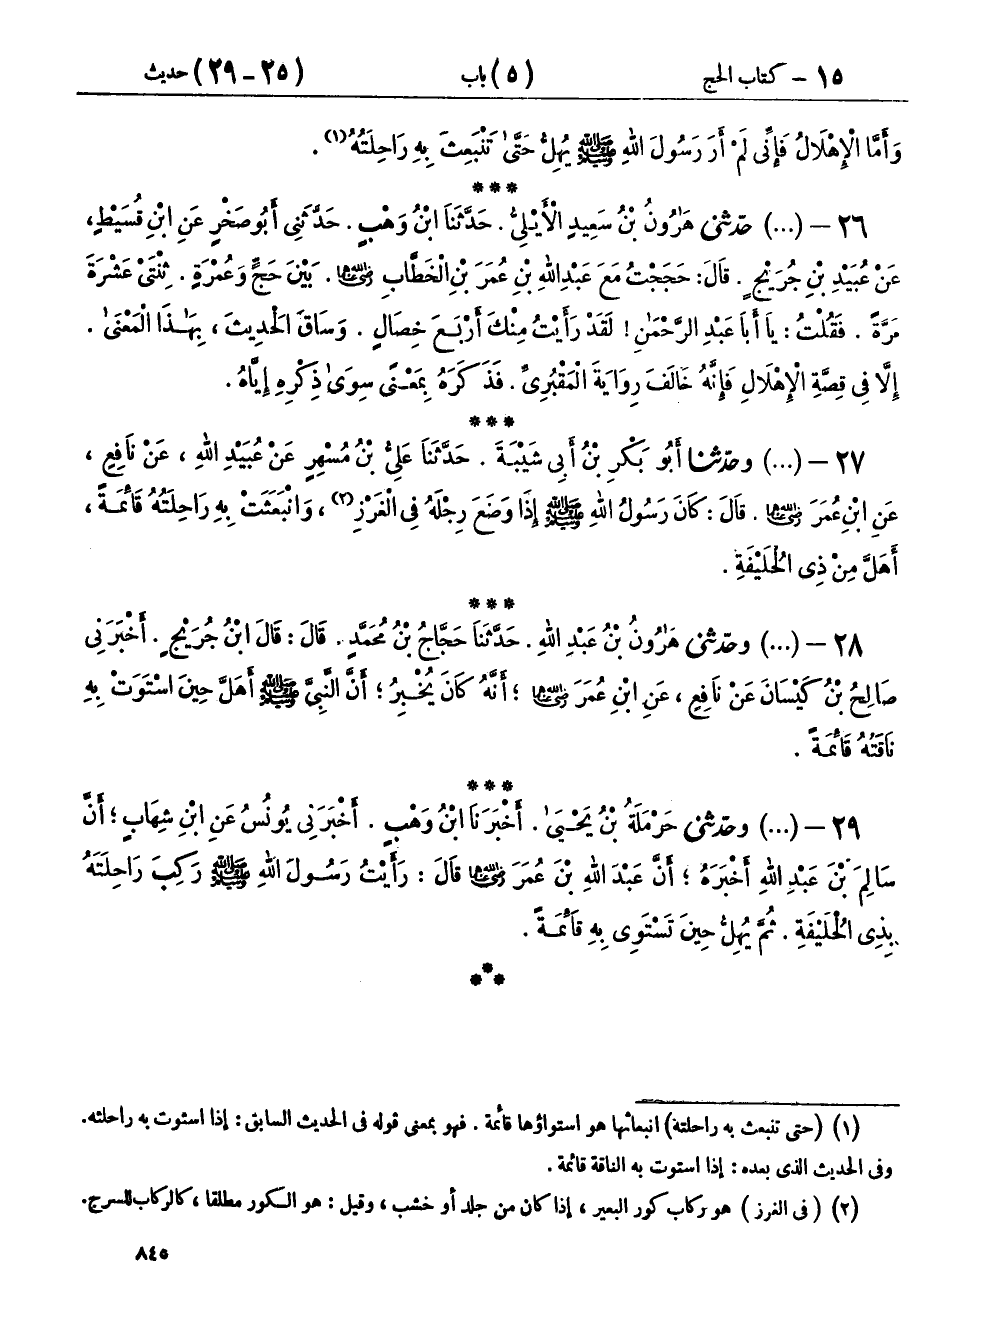 ١٥ – كتاب الحج (٥) باب (٢٥ – ٢٩) حديث
وَأَمَّا الْإِهْلَالُ فَإِنِّي لَمْ أَرَ رَسُولَ اللهِ ﷺ يُهِلُّ حَتَّىٰ تَنْبَعِثَ بِهِ رَاحِلَتُهُ(١) .
***
٢٦ – (...) حَدَّثَنِي هَٰرُونُ بْنُ سَعِيدٍ الْأَيْلِيُّ . حَدَّثَنَا ابْنُ وَهْبٍ . حَدَّثَنِي أَبُو صَخْرٍ عَنِ ابْنِ قُسَيْطٍ،
عَنْ عُبَيْدِ بْنِ جُرَيْجٍ . قَالَ: حَجَجْتُ مَعَ عَبْدِ اللهِ بْنِ عُمَرَ بْنِ الْخَطَّابِ رَضِيَ اللهُ عَنْهُمَا . بَيْنَ حَجٍّ وَعُمْرَةٍ . ثِنْتَيْ عَشْرَةَ
مَرَّةً . فَقُلْتُ : يَا أَبَا عَبْدِ الرَّحْمَٰنِ ! لَقَدْ رَأَيْتُ مِنْكَ أَرْبَعَ خِصَالٍ . وَسَاقَ الْحَدِيثَ ، بِهَٰذَا الْمَعْنَىٰ .
إِلَّا فِي قِصَّةِ الْإِهْلَالِ فَإِنَّهُ خَالَفَ رِوَايَةَ الْمَقْبُرِيِّ . فَذَكَرَهُ بِمَعْنًى سِوَىٰ ذِكْرِهِ إِيَّاهُ .
***
٢٧ – (...) وحَدَّثَنَا أَبُو بَكْرِ بْنُ أَبِي شَيْبَةَ . حَدَّثَنَا عَلِيُّ بْنُ مُسْهِرٍ عَنْ عُبَيْدِ اللهِ ، عَنْ نَافِعٍ ،
عَنِ ابْنِ عُمَرَ رَضِيَ اللهُ عَنْهُمَا . قَالَ : كَانَ رَسُولُ اللهِ ﷺ إِذَا وَضَعَ رِجْلَهُ فِي الْغَرْزِ(٢) ، وَانْبَعَثَتْ بِهِ رَاحِلَتُهُ قَائِمَةً ،
أَهَلَّ مِنْ ذِي الْحُلَيْفَةِ .
***
٢٨ – (...) وحَدَّثَنِي هَٰرُونُ بْنُ عَبْدِ اللهِ . حَدَّثَنَا حَجَّاجُ بْنُ مُحَمَّدٍ . قَالَ : قَالَ ابْنُ جُرَيْجٍ . أَخْبَرَنِي
صَالِحُ بْنُ كَيْسَانَ عَنْ نَافِعٍ ، عَنِ ابْنِ عُمَرَ رَضِيَ اللهُ عَنْهُمَا ؛ أَنَّهُ كَانَ يُخْبِرُ ؛ أَنَّ النَّبِيَّ ﷺ أَهَلَّ حِينَ اسْتَوَتْ بِهِ
نَاقَتُهُ قَائِمَةً .
***
٢٩ – (...) وحَدَّثَنِي حَرْمَلَةُ بْنُ يَحْيَىٰ . أَخْبَرَنَا ابْنُ وَهْبٍ . أَخْبَرَنِي يُونُسُ عَنِ ابْنِ شِهَابٍ ؛ أَنَّ
سَالِمَ بْنَ عَبْدِ اللهِ أَخْبَرَهُ ؛ أَنَّ عَبْدَ اللهِ بْنَ عُمَرَ رَضِيَ اللهُ عَنْهُمَا قَالَ : رَأَيْتُ رَسُولَ اللهِ ﷺ رَكِبَ رَاحِلَتَهُ
بِذِي الْحُلَيْفَةِ . ثُمَّ يُهِلُّ حِينَ تَسْتَوِي بِهِ قَائِمَةً .
***
(١) (حتى تنبعث به راحلته) انبعاثها هو استواؤها قائمة . فهو بمعنى قوله فى الحديث السابق : إذا استوت به راحلته.
وفى الحديث الذى بعده : إذا استوت به الناقة قائمة .
(٢) ( فى الغرز ) هو ركاب كور البعير ، إذا كان من جلد أو خشب ، وقيل : هو الكور مطلقا ، كالركاب للسرج.
٨٤٥